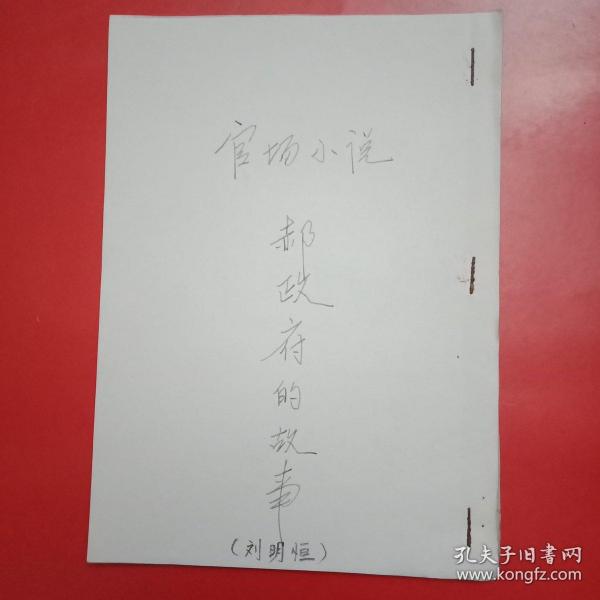 官场小说
郝政府的故事
(刘明恒)
孔夫子旧書网
www.kongfz.com